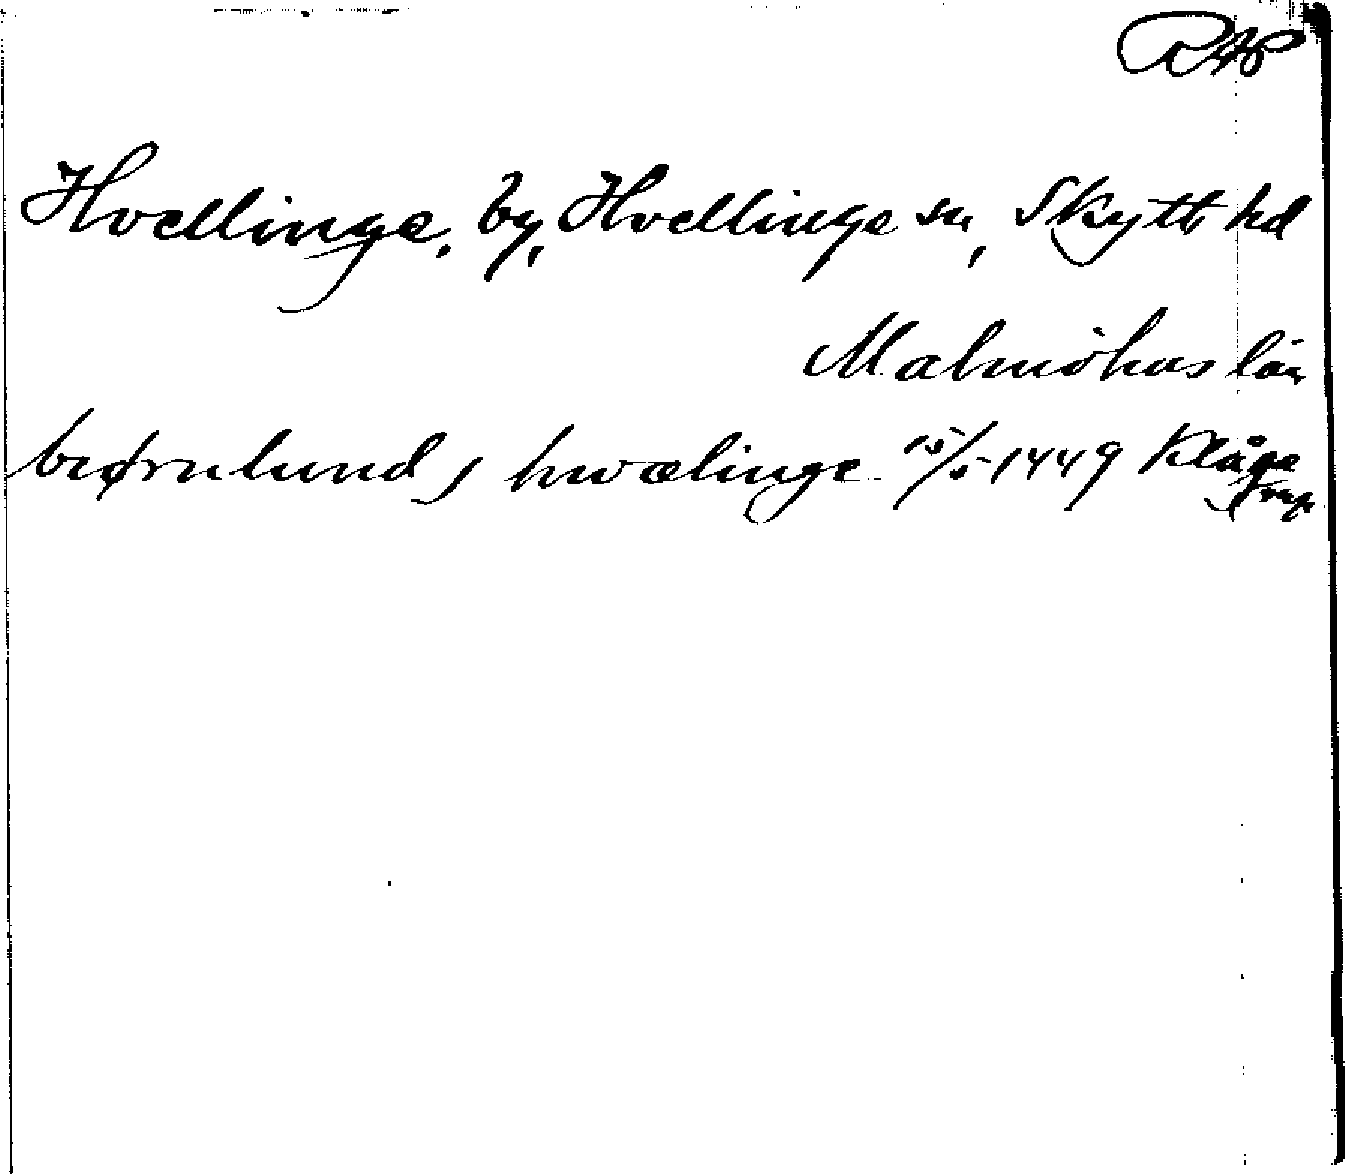 RAP
Hvellinge, by, Hvellinge sn, Skytts hd
Malmöhus län
biørnlund j hwælinge 15/5 1449 Klåge
rup